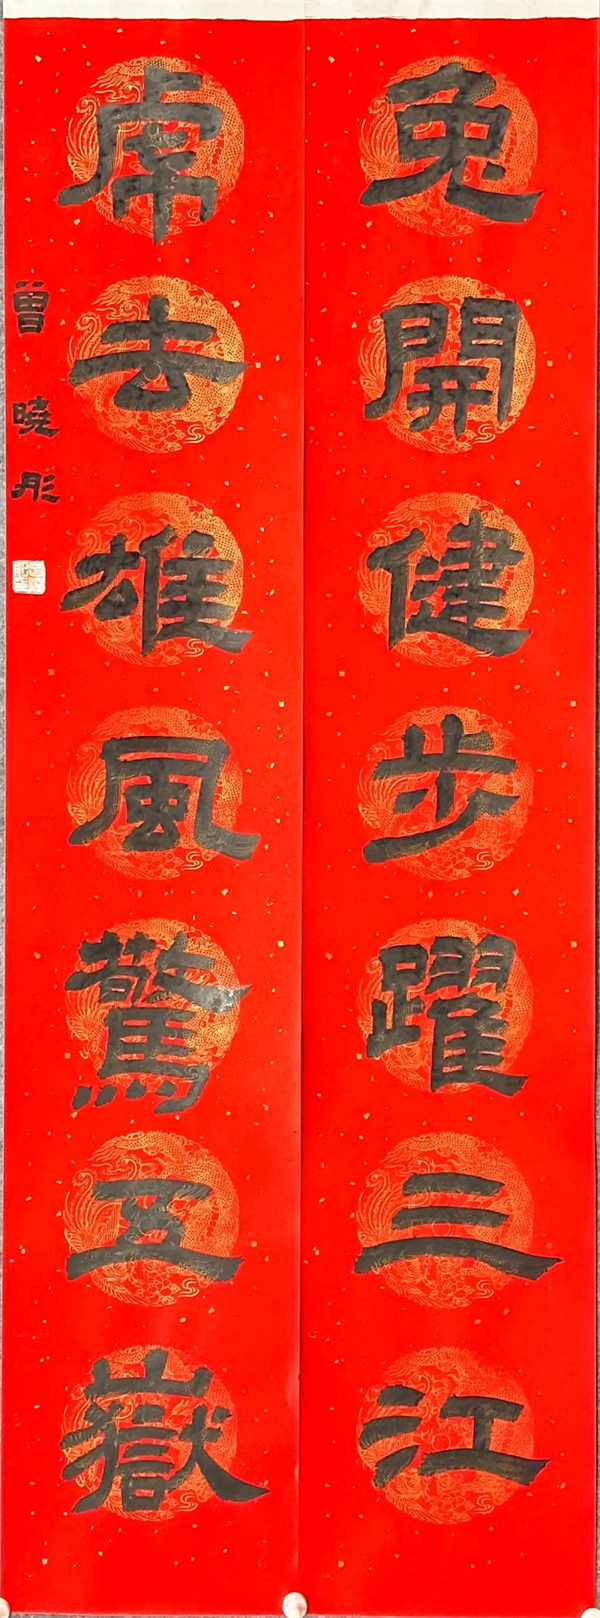 兔開健步躍三江
虎去雄風驚五嶽
曾曉彤